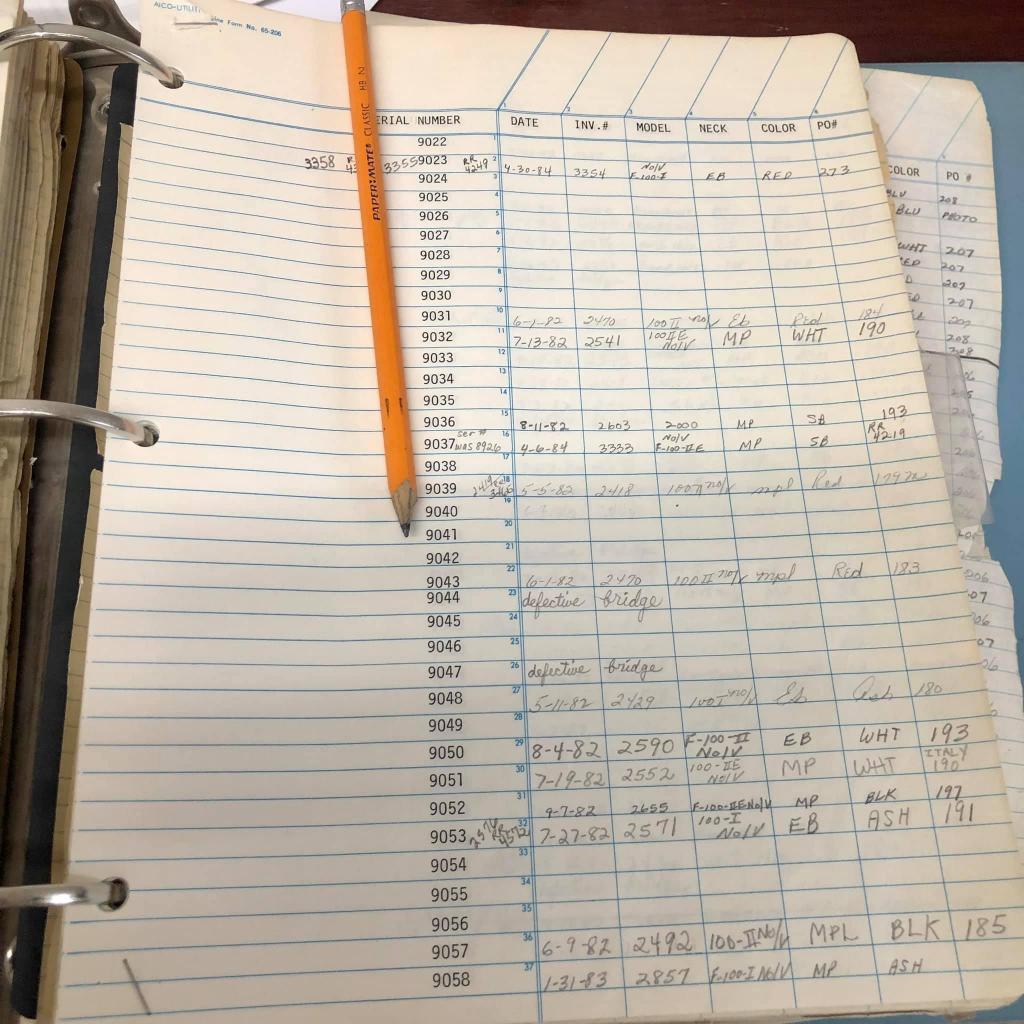 AICO-UTILIT
Line Form No. 65-206
PAPER:MATE CLASSIC HB 2
ERIAL NUMBER DATE INV.# MODEL NECK COLOR PO#
9022
3358 3355 9023 RR 4249 4-30-84 3354 No/V F-100-I EB RED 273
9024
9025
9026
9027
9028
9029
9030
9031 6-1-82 2470 100 II no/V Eb Red 184
9032 7-13-82 2541 100 IIE No/V MP WHT 190
9033
9034
9035
9036 8-11-82 2603 2000 MP SB 193
9037 ser # was 8926 4-6-84 3333 No/V F-100-IIE MP SB RR 4219
9038
9039 5-5-82 2418 100 II no/V mpl Red 179
9040
9041
9042
9043 6-1-82 2470 100 II no/V mpl Red 183
9044 defective bridge
9045
9046
9047 defective bridge
9048 5-11-82 2429 100 I no/V Eb Ash 180
9049
9050 8-4-82 2590 F-100-II No/V EB WHT 193
9051 7-19-82 2552 100-IIE No/V MP WHT ITALY 190
9052 9-7-82 2655 F-100-IIE No/V MP BLK 197
9053 2576 RR 4572 7-27-82 2571 100-I No/V EB ASH 191
9054
9055
9056
9057 6-9-82 2492 100-II No/V MPL BLK 185
9058 1-31-83 2857 F-100-I No/V MP ASH
COLOR PO #
BLV 208
BLU PHOTO
WHT 207
RED 207
207
207
207
208
208